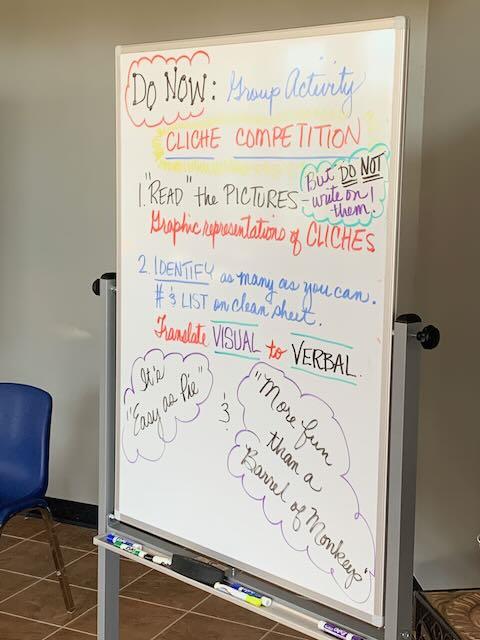 DO NOW: Group Activity
CLICHE COMPETITION
1. "READ" the PICTURES
But DO NOT
- write on
them!
Graphic representations of CLICHES
2. IDENTIFY as many as you can.
# & LIST on clean sheet.
Translate VISUAL to VERBAL.
It's
"Easy as Pie"
&
"More fun
than a
Barrel of Monkeys"